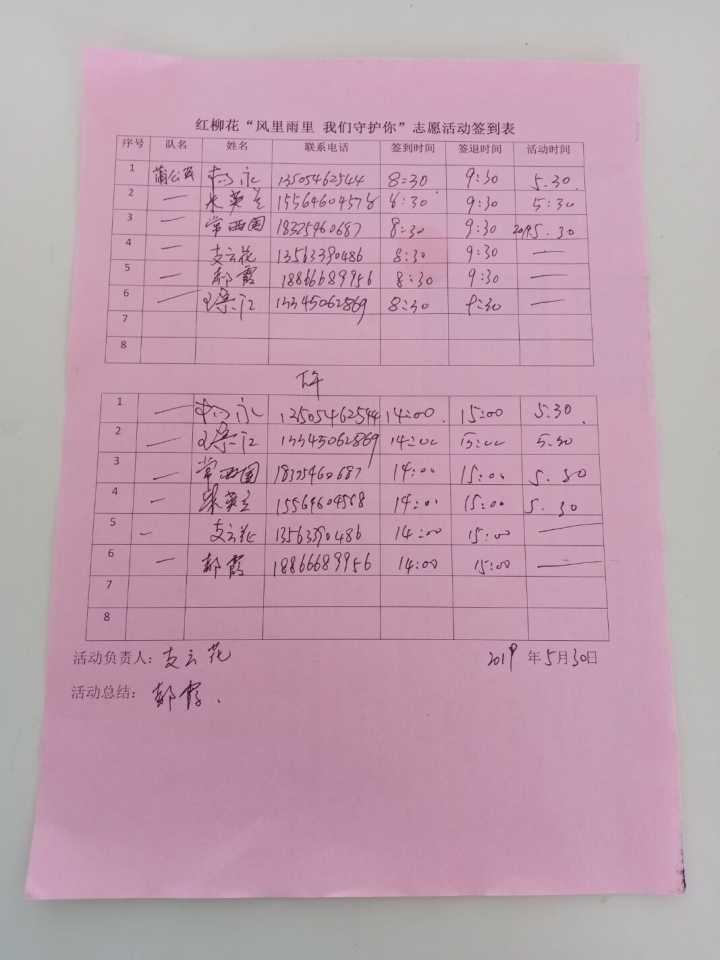 红柳花“风里雨里 我们守护你”志愿活动签到表
序号 队名 姓名 联系电话 签到时间 签退时间 活动时间
1 蒲公英 13505462544 8:30 9:30 5.30
2 — 朱英兰 8:30 9:30 5:30
3 — 常西国 18325460687 8:30 9:30 2019.5.30
4 — 支云花 13563390486 8:30 9:30 —
5 — 郝霞 18866689956 8:30 9:30 —
6 — 13345062869 8:30 9:30 —
7
8
下午
1 — 13505462544 14:00 15:00 5.30.
2 — 13345062869 14:00 15:00 5.30
3 — 常西国 18325460687 14:00 15:00 5.30
4 — 朱英兰 14:00 15:00 5.30
5 — 支云花 13563390486 14:00 15:00 —
6 — 郝霞 18866689956 14:00 15:00 —
7
8
活动负责人：支云花 2019 年5月30日
活动总结： 郝霞.